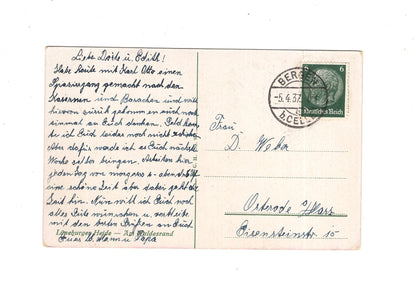 Liebe Dorte u. Edith!
Habe Heute mit Karl Otto einen
Spaziergang gemacht nach den
Kasernen und Baracken und will
hiervon zurück gekommen auch noch
einmal an Euch denken. Geld kann
te ich Euch leider noch nicht schicken
Aber dafür werde ich es Euch nächste
Woche selber bringen. Arbeiten hier
jeden Tag von morgens
eine schöne Zeit aber dabei geht die
Zeit hin. Nun will ich Euch noch
alles Gute wünschen u. verbleibe
mit den besten Grüßen an Euch
Euer lb. Mann u. Papa
Lüneburger Heide — Am Waldesrand
BERGEN
-5.4.37
b. CELLE
6
Deutsches Reich
Frau
D. Weber
Osterode / Harz
Eisensteinstr 15